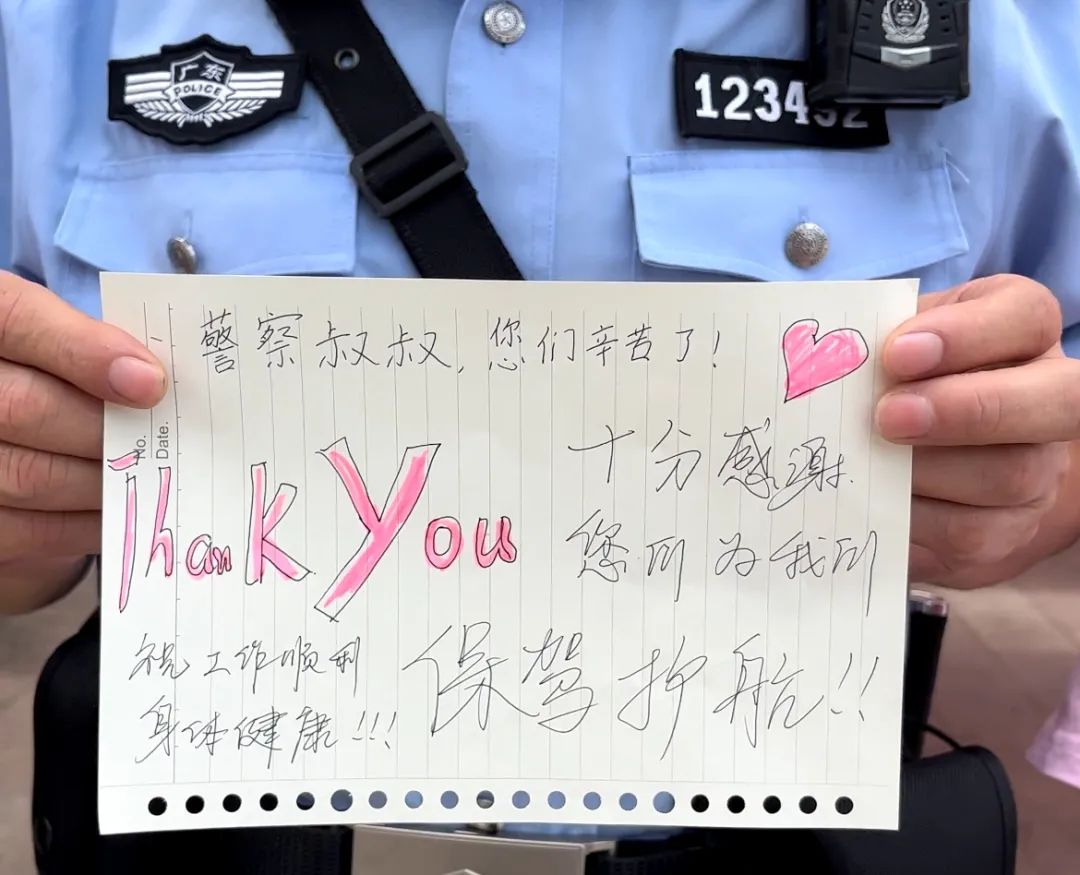 广东
POLICE
警察叔叔,您们辛苦了!
No.
Date.
Thank You
十分感谢
您们为我们
保驾护航!!
祝工作顺利
身体健康!!!